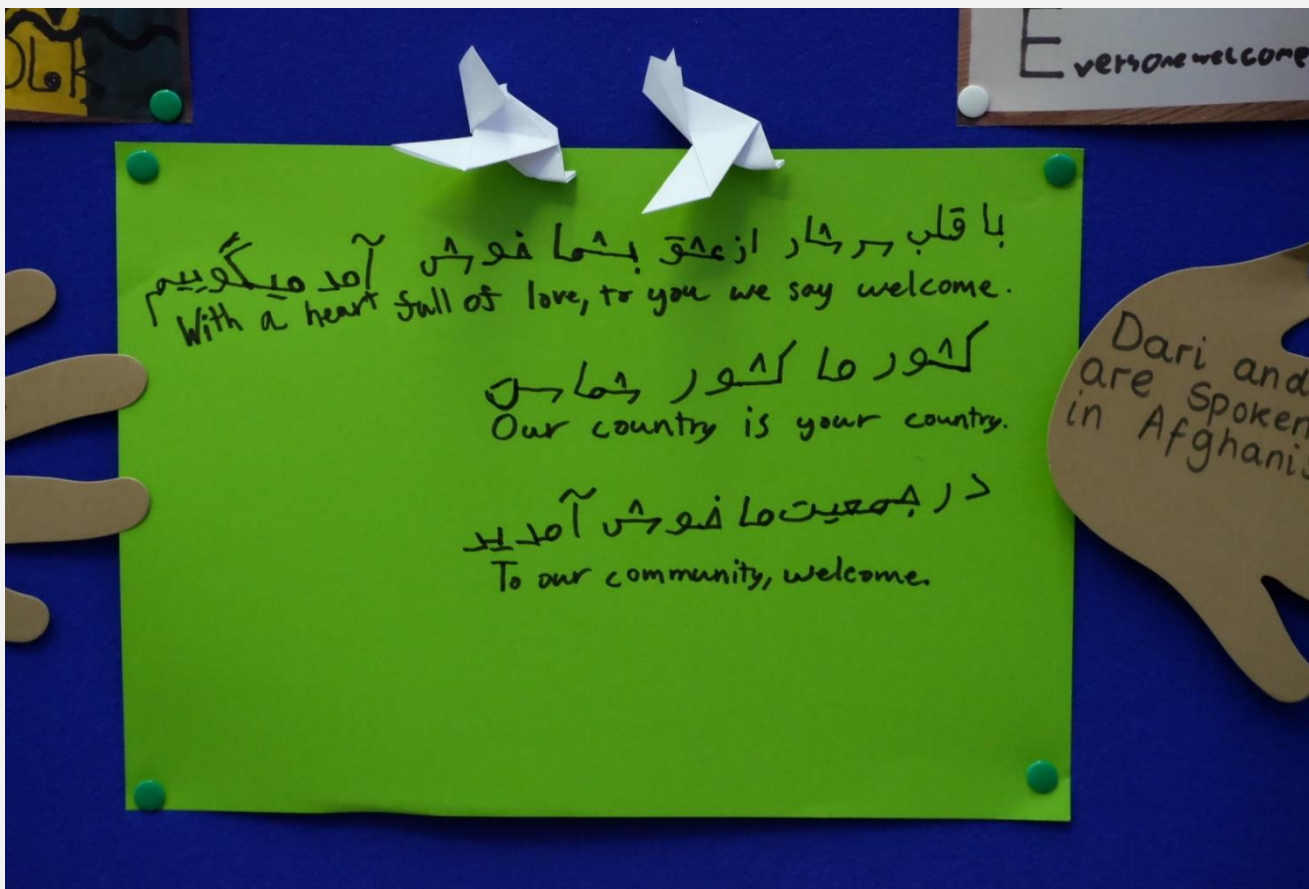 Everyone welcome
با قلب سرشار از عشق بشما خوش آمد میگوییم
With a heart full of love, to you we say welcome.
کشور ما کشور شماست
Our country is your country.
در جمعیت ما خوش آمدید
To our community, welcome.
Dari and
are spoken
in Afghanis